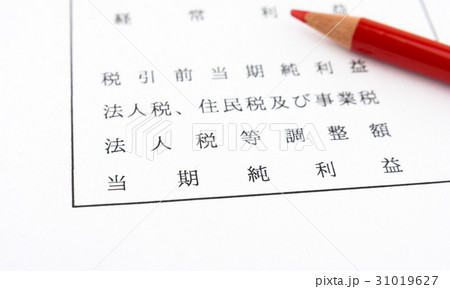 経常利益
税引前当期純利益
法人税、住民税及び事業税
法人税等調整額
当期純利益
PIXTA
pixta.jp - 31019627